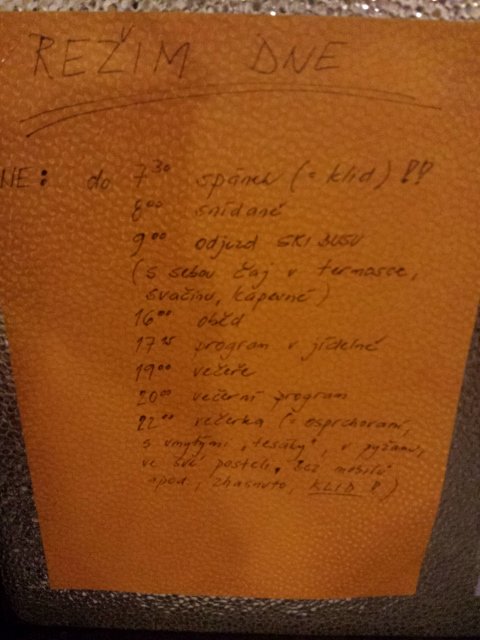 REŽIM DNE
NE: do 7³⁰ spánek (= klid) !!
8⁰⁰ snídaně
9⁰⁰ odjezd SKI BUSU
(s sebou čaj v termosce,
svačinu, kapesné)
16⁰⁰ oběd
17¹⁵ program v jídelně
19⁰⁰ večeře
20⁰⁰ večerní program
22⁰⁰ večerka (= osprchovaní,
s vmytými „tesáky", v pyžamu,
ve své posteli, bez mobilů
apod., zhasnuto, KLID !)